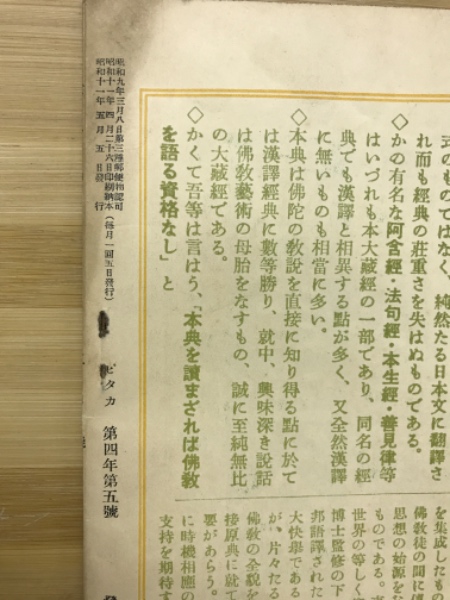 式のものではなく、純然たる日本文に翻譯さ
れ而も經典の莊重さを失はぬものである。
◇かの有名な阿含經・法句經・本生經・善見律等
はいづれも本大藏經の一部であり、同名の經
典でも漢譯と相異する點が多く、又全然漢譯
に無いものも相當に多い。
◇本典は佛陀の敎說を直接に知り得る點に於て
は漢譯經典に數等勝り、就中、興味深き說話
は佛敎藝術の母胎をなすもの、誠に至純無比
の大藏經である。
◇かくて吾等は言はう、「本典を讀まざれば佛敎
を語る資格なし」と
を集成したもの
佛敎徒の間に
思想の始源をな
ものである。
世界の等しく
博士監修の下
邦語譯された
大快擧である
が、片々たる
佛敎の全貌を
接原典に就て
要があらう。
に時機相應の
支持を期待す
昭和九年三月八日第三種郵便物認可
昭和十一年四月二十六日印刷納本(每月一回五日發行)
昭和十一年五月五日發行
ピタカ 第四年第五號